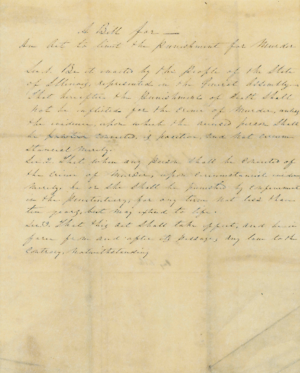 A Bill for —
An Act to limit the Punishment for Murder
Sec 1. Be it enacted by the People of the State
of Illinois, represented in the General Assembly,
That hereafter the Punishment of Death Shall
not be inflicted for the Crime of Murder, unless
the evidence upon which the accused person Shall
be convicted is positive and not circum
stancial merely.
Sec 2. That when any person Shall be convicted of
the crime of Murder, upon circumstancial evidence
merely he or she Shall be punished by
in the Penitentiary, for any term not less than
ten years, but may extend to life.
Sec 3. That this act Shall take effect, and be in
force from and after its Passage, any law to the
Contrary notwithstanding